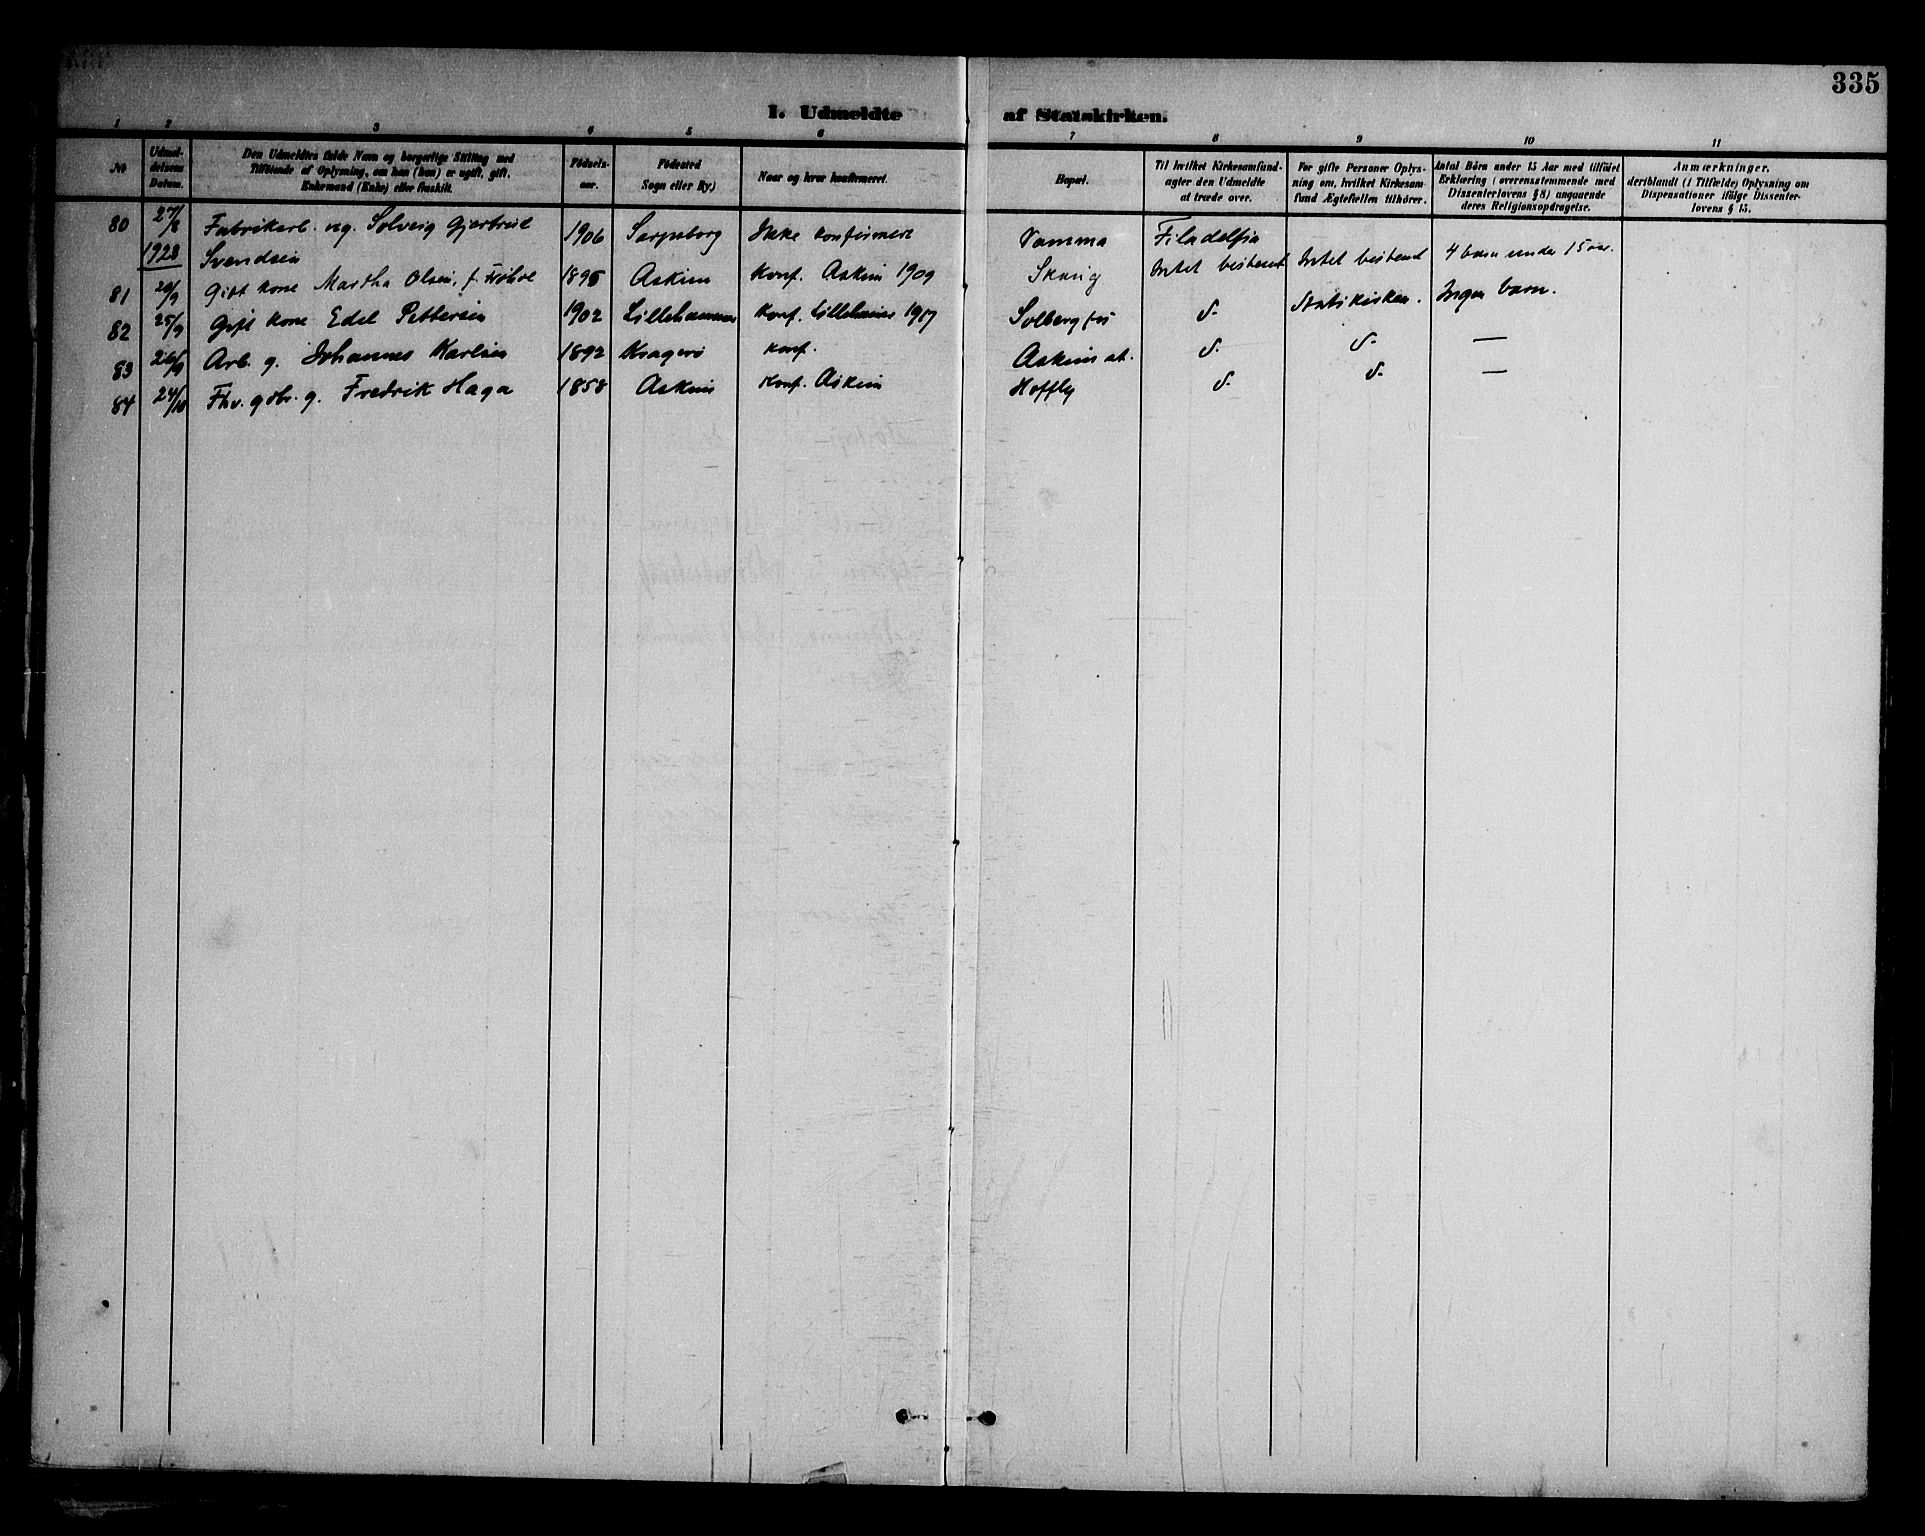 335
I. Udmeldte af Statskirken.
1 2 3 4 5 6 7 8 9 10 11
No
Udmel-
delsens
Datum.
Den Udmeldtes fulde Navn og borgerlige Stilling med
Tilföiende af Oplysning, om han (hun) er ugift, gift,
Enkemand (Enke) eller fraskilt.
Födsels-
aar.
Födested
Sogn eller By)
Naar og hvor konfirmeret.
Bopæl.
Til hvilket Kirkesamfund-
agter den Udmeldte
at træde over.
For gifte Personer Oplys-
ning om, hvilket Kirkesam-
fund Ægtefællen tilhörer.
Antal Börn under 15 Aar med tilföiet
Erklæring (overensstemmende med
Dissenterlovens § 8) angaaende
deres Religionsopdragelse.
Anmærkninger,
deriblandt (i Tilfælde) Oplysning om
Dispensationer ifölge Dissenter-
lovens § 15.
80 27/8 Fabrikarb. ug. Solveig 1906 Sarpsborg Ikke konfirmert Vamma Filadelfia
1928 Svendsen
81 20/9 Gift kone Martha Olsen, f. 1895 Askim Konf. Askim 1909 Skaug Intet bestemt Intet bestemt 4 barn under 15 aar.
82 25/9 Gift kone Edel Pettersen 1902 Lillehammer Konf. 1917 Solbergfos d- Statskirken. Ingen barn.
83 26/9 Arb. g. Johannes Karlsen 1892 Kragerö Konf. Askim st. d- d- —
84 24/10 Fhv. gbr. g. Fredrik Haga 1858 Askim Konf. Askim d- d- —